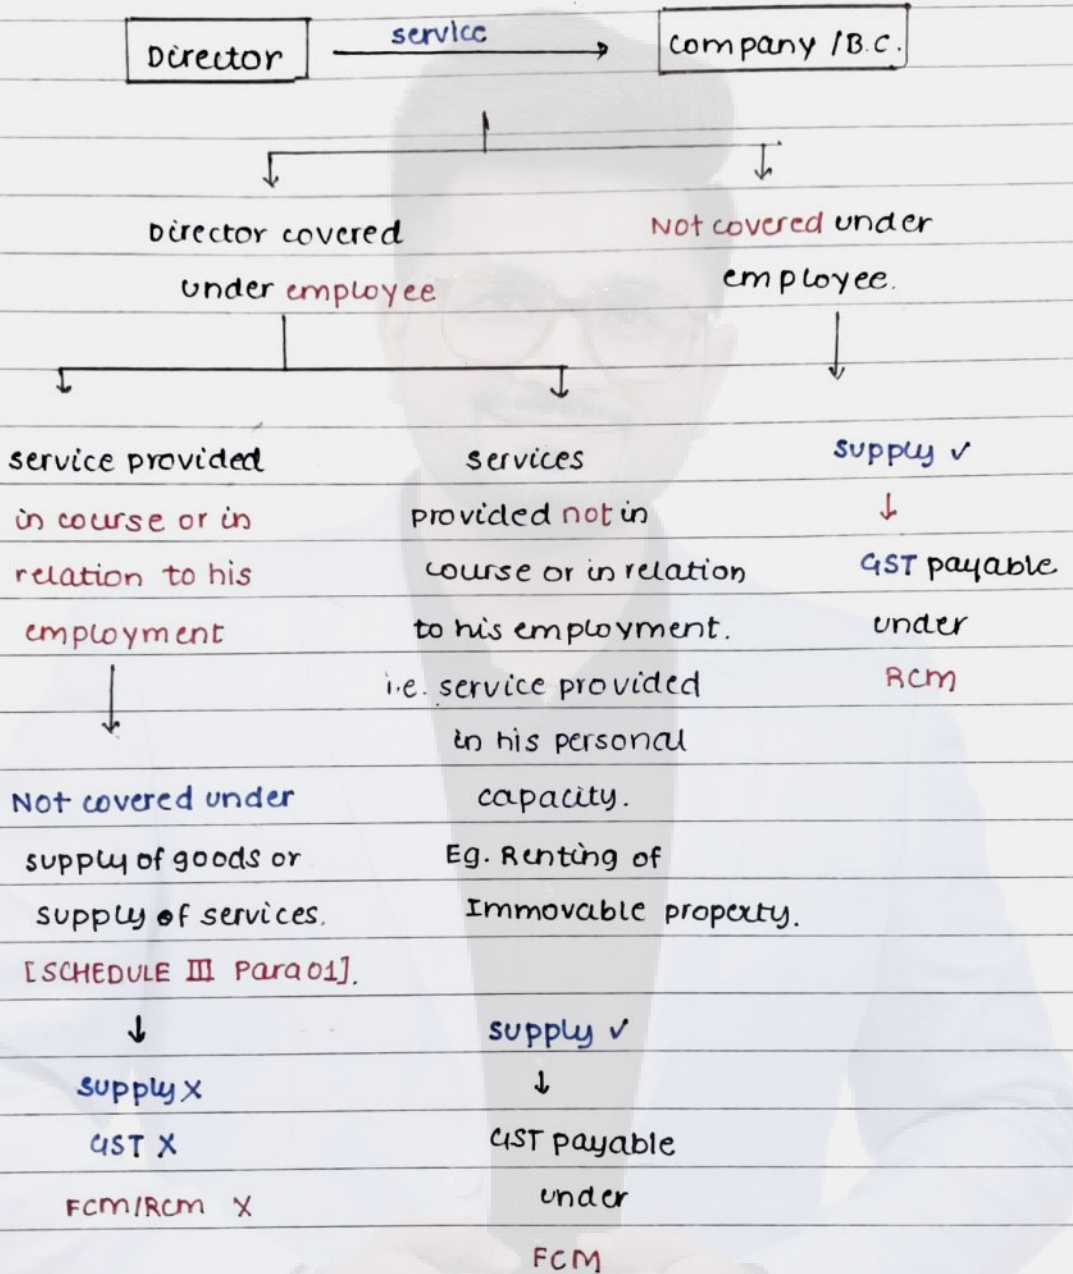 Director
service
company / B.C.
Director covered
under employee
Not covered under
employee.
service provided
in course or in
relation to his
employment
Not covered under
supply of goods or
supply of services.
[SCHEDULE III Para 01].
↓
supply X
GST X
FCM/RCM X
services
provided not in
course or in relation
to his employment.
i.e. service provided
in his personal
capacity.
Eg. Renting of
Immovable property.
supply ✓
↓
GST payable
under
FCM
supply ✓
↓
GST payable
under
RCM